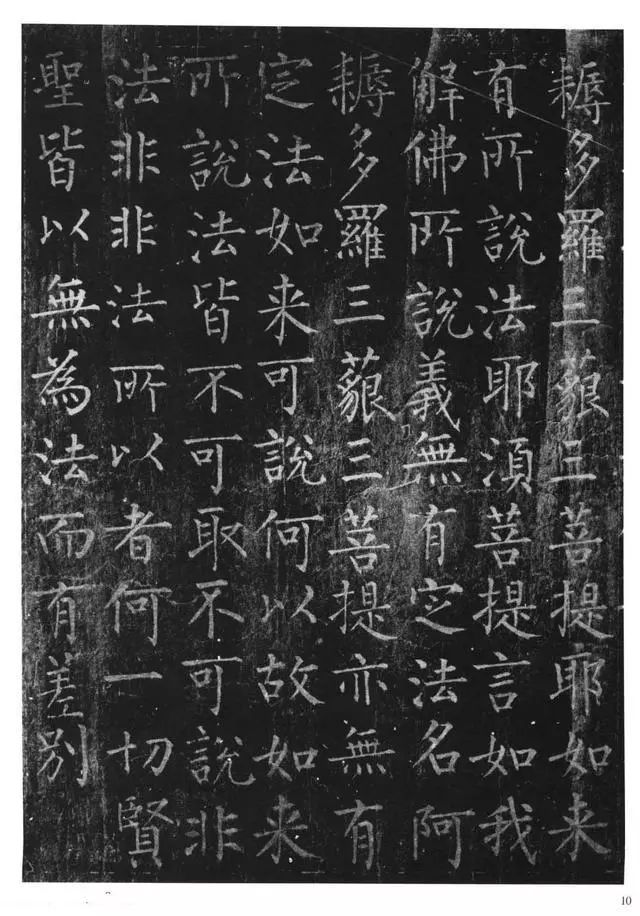 耨多羅三藐三菩提耶如来
有所說法耶須菩提言如我
解佛所說義無有定法名阿
耨多羅三藐三菩提亦無有
定法如来可說何以故如来
所說法皆不可取不可說非
法非非法所以者何一切賢
聖皆以無為法而有差别
10